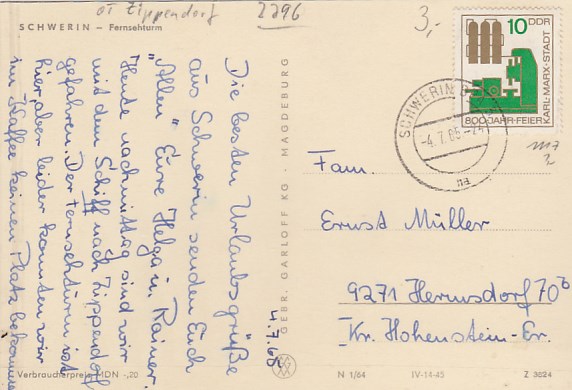 OT Zippendorf
2296
3,-
SCHWERIN – Fernsehturm
Die besten Urlaubsgrüße
aus Schwerin senden Euch
"Allen" Eure Helga u. Rainer.
Heute nachmittag sind wir
mit dem Schiff nach Zippendorf
gefahren. Der Fernsehturm ist
hier, aber leider konnten wir
im Kaffee keinen Platz bekommen
4.7.65
GEBR. GARLOFF KG · MAGDEBURG
10 DDR
KARL-MARX-STADT
800-JAHR-FEIER
SCHWERIN
-4.7.65-
Fam.
Ernst Müller
9271 Hermsdorf 70b
Kr. Hohenstein-Er.
Verbraucherpreis MDN -,20
N 1/64
IV-14-45
Z 3624